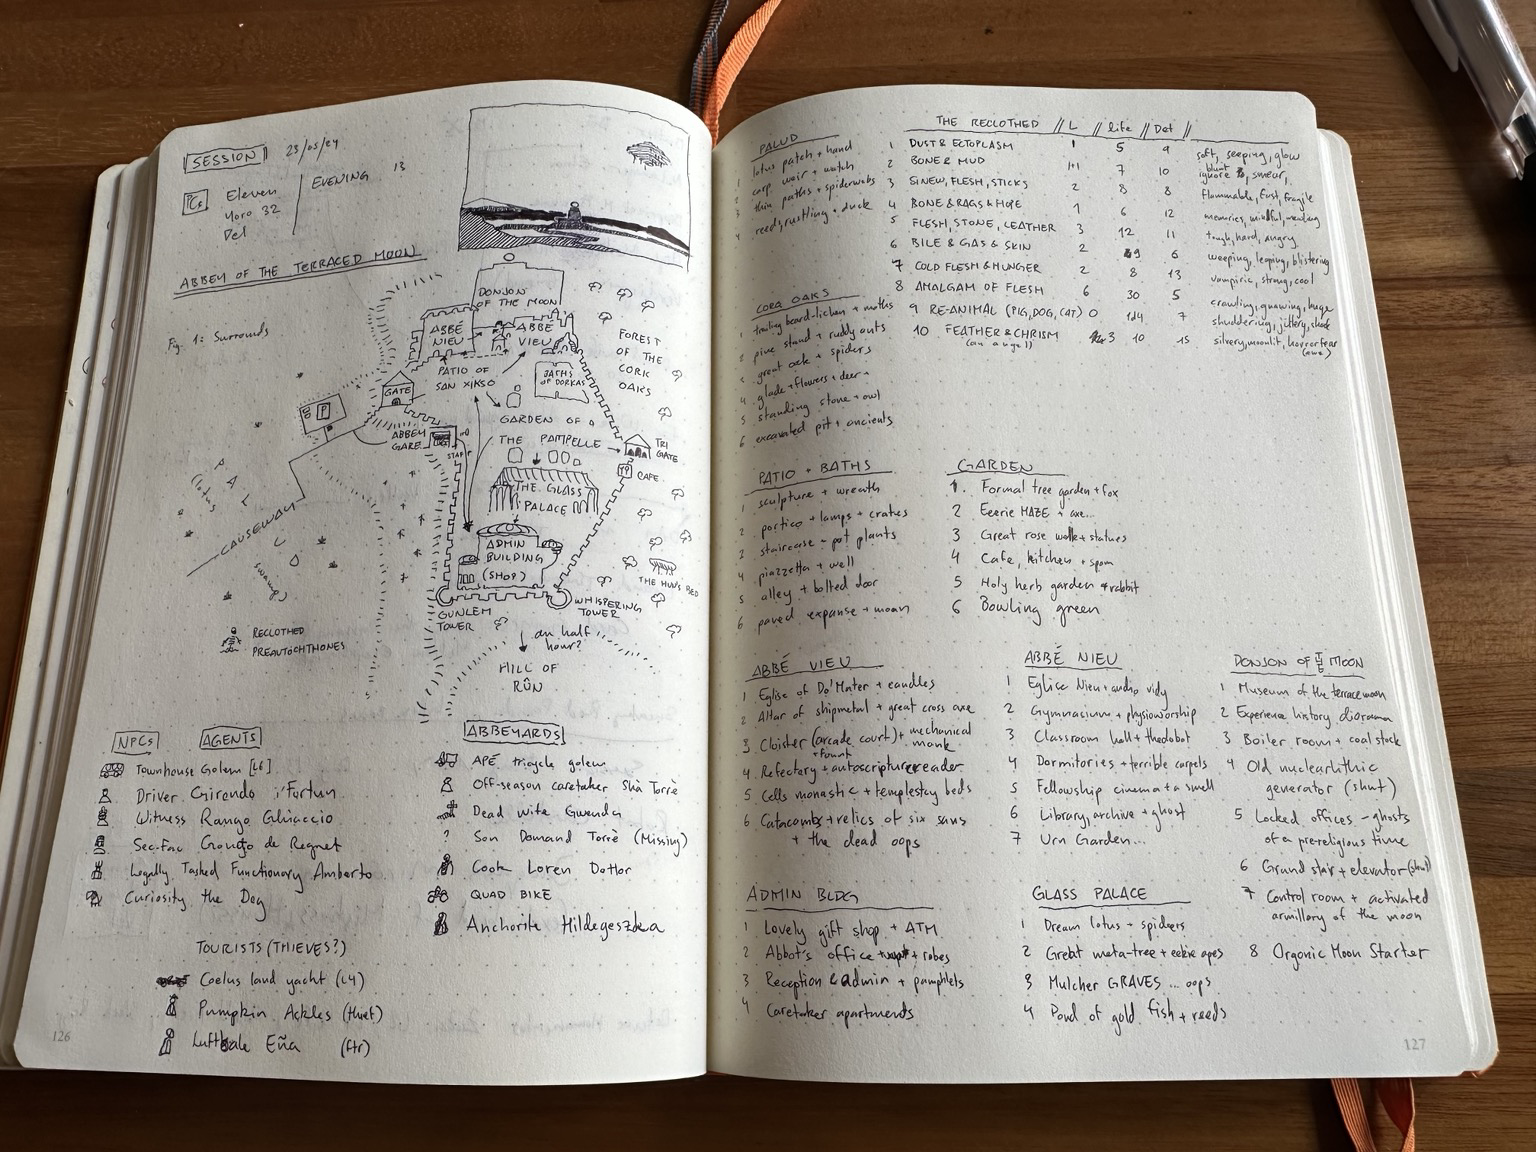 SESSION 23/05/24
PCs Eleven
Yoro 32
Del
EVENING 13
ABBEY OF THE TERRACED MOON
Fig. 1: Surrounds
DONJON
OF THE MOON
ABBÉ
NIEU
ABBÉ
VIEU
FOREST
OF THE
CORK
OAKS
PATIO OF
SAN XIKSO
BATHS
OF DORKAS
GATE
P
ABBEY
GARE
START
GARDEN OF
THE PAMPELLE
TRI
GATE
CAFE
THE GLASS
PALACE
ADMIN
BUILDING
(SHOP)
PALUD
(lotus
swamp)
CAUSEWAY
THE HUN'S BED
GUNLEM
TOWER
WHISPERING
TOWER
an half
hour?
HILL OF
RÛN
RECLOTHED
PREAUTOCHTHONES
NPCs AGENTS
Townhouse Golem [L6]
Driver Girendo i'Fortun
Witness Rango Ghiaccio
Sec-fac Gongo de Regnet
Legally Tasked Functionary Amberto
Curiosity the Dog
TOURISTS (THIEVES?)
Coelus land yacht (L4)
Pumpkin Ackles (thief)
Luftbale Eña (ftr)
ABBEYARDS
APÉ tricycle golem
Off-season caretaker Shà Torrè
Dead wife Gwenda
? Son Domand Torrè (Missing)
Cook Loren Dottor
QUAD BIKE
Anchorite Hildegeszka
126
PALUD
1 lotus patch + hand
2 carp weir + watch
3 thin paths + spiderwebs
4 reeds, rustling + duck
THE RECLOTHED // L // life // Def //
1 DUST & ECTOPLASM 1 5 9 soft, seeping, glow
2 BONE & MUD 1+1 7 10 blunt ignore, smear,
3 SINEW, FLESH, STICKS 2 8 8 flammable, fast, fragile
4 BONE & RAGS & HOPE 1 6 12 memories, mindful, mending
5 FLESH, STONE, LEATHER 3 12 11 tough, hard, angry
6 BILE & GAS & SKIN 2 9 6 weeping, leaping, blistering
7 COLD FLESH & HUNGER 2 8 13 vampiric, strong, cool
8 AMALGAM OF FLESH 6 30 5 crawling, gnawing, huge
9 RE-ANIMAL (PIG, DOG, CAT) 0 1d4 7 shuddering, jittery, shock
10 FEATHER & CHRISM 3 10 15 silvery, moonlit, horror fear
(an angel) (awe)
CORQ OAKS
1 trailing beard-lichen + moths
2 pine stand + ruddy ants
3 great oak + spiders
4 glade + flowers + deer
5 standing stone + owl
6 excavated pit + ancients
PATIO + BATHS
1 sculpture + wreath
2 portico + lamps + crates
3 staircase - pot plants
4 piazzetta + well
5 alley + bolted door
6 paved expanse + moon
GARDEN
1. Formal tree garden + fox
2 Eeerie MAZE + axe...
3 Great rose walk + statues
4 Cafe, kitchen + spam
5 Holy herb garden + rabbit
6 Bowling green
ABBÉ VIEU
1 Eglise of Do'Mater + candles
2 Altar of shipmetal + great cross axe
3 Cloister (arcade court) + mechanical monk
+ fount
4 Refectory + autoscripturereader
5 Cells monastic + templestay beds
6 Catacombs + relics of six sans
+ the dead oops
ABBÉ NIEU
1 Eglise Nieu + audio vidy
2 Gymnasium + physioworship
3 Classroom hall + thedobot
4 Dormitories + terrible carpets
5 Fellowship cinema + a smell
6 Library, archive + ghost
7 Urn Garden...
DONJON OF THE MOON
1 Museum of the terrace moon
2 Experience history diorama
3 Boiler room + coal stock
4 Old nuclearlithic
generator (shut)
5 Locked offices - ghosts
of a pre-religious time
6 Grand stair + elevator (shut)
7 Control room + activated
armillary of the moon
8 Orgonic Moon Starter
ADMIN BLDG
1 Lovely gift shop + ATM
2 Abbot's office + robes
3 Reception & admin + pamphlets
4 Caretaker apartments
GLASS PALACE
1 Dream lotus + spiders
2 Great meta-tree + eekie apes
3 Mulcher GRAVES ... oops
4 Pond of gold fish + reeds
127